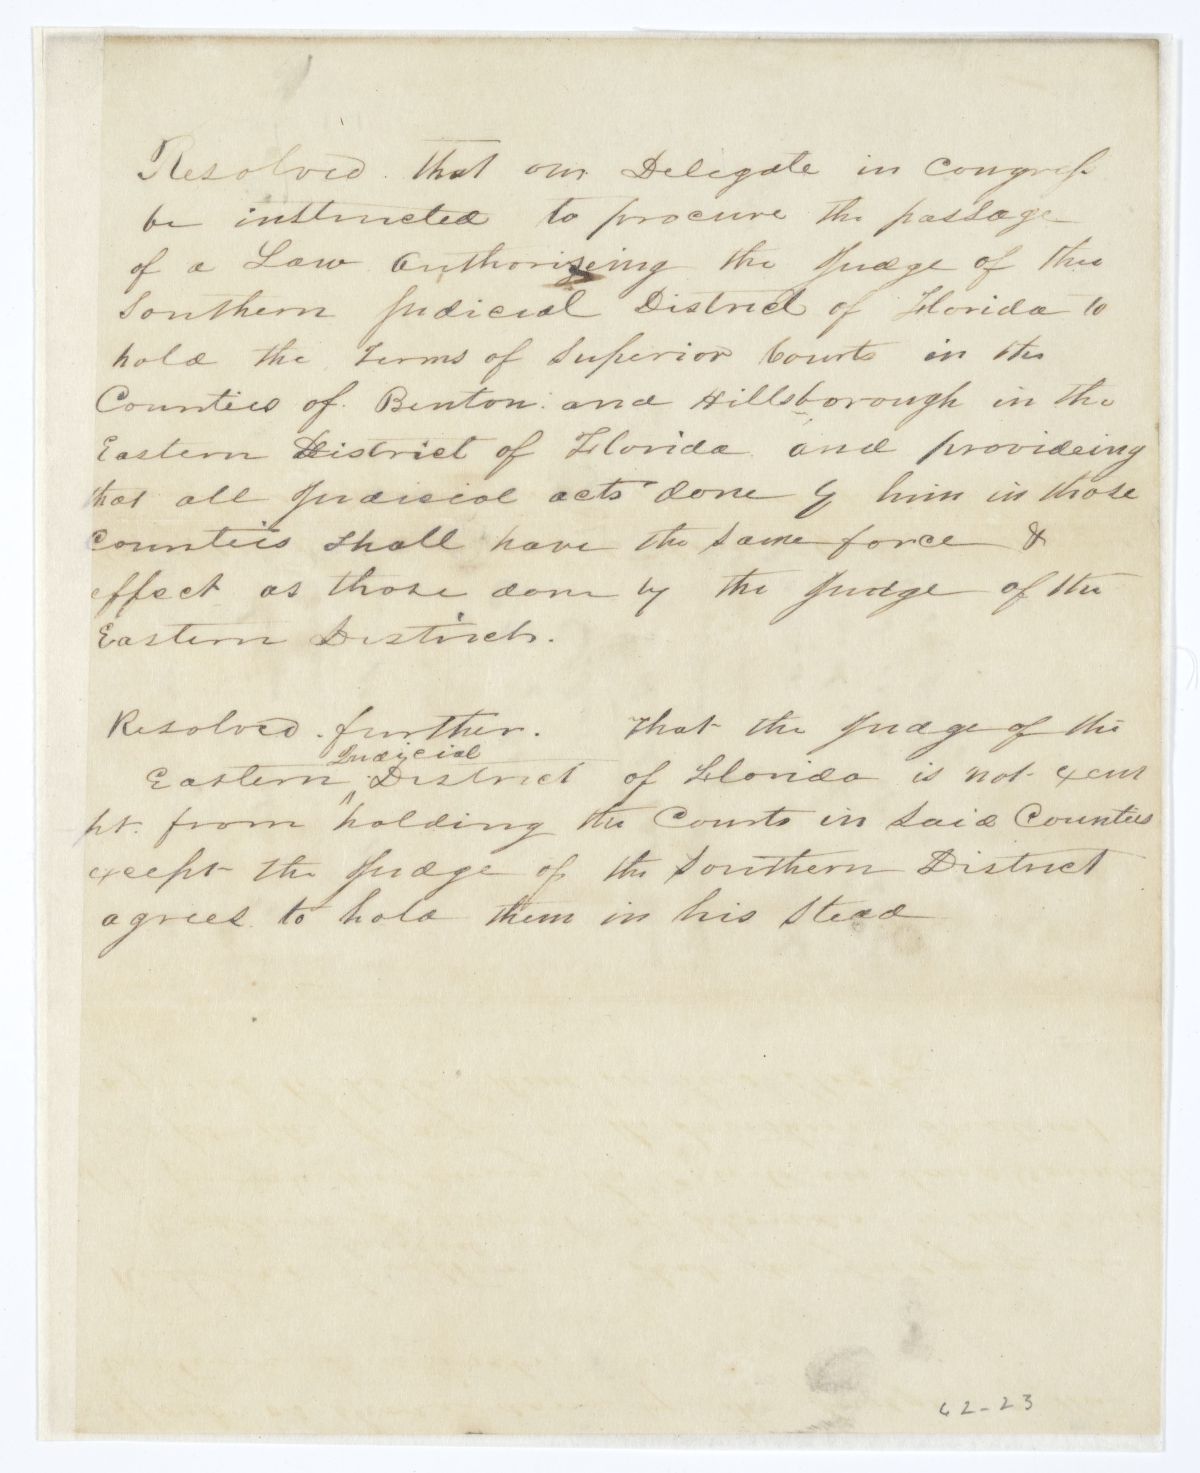 Resolved. that our Delegate in Congress
be instructed to procure the passage
of a Law authoriseing the Judge of the
Southern Judicial District of Florida to
hold the Terms of Superior Courts in the
Counties of Benton and Hillsborough in the
Eastern District of Florida and provideing
that all Judicial acts done by him in those
Counties shall have the same force &
effect as those done by the Judge of the
Eastern District.
Resolved further. That the Judge of the
Judicial
Eastern ^ District of Florida is not exem
pt. from holding the Courts in said Counties
except the Judge of the Southern District
agrees to hold them in his stead
62-23